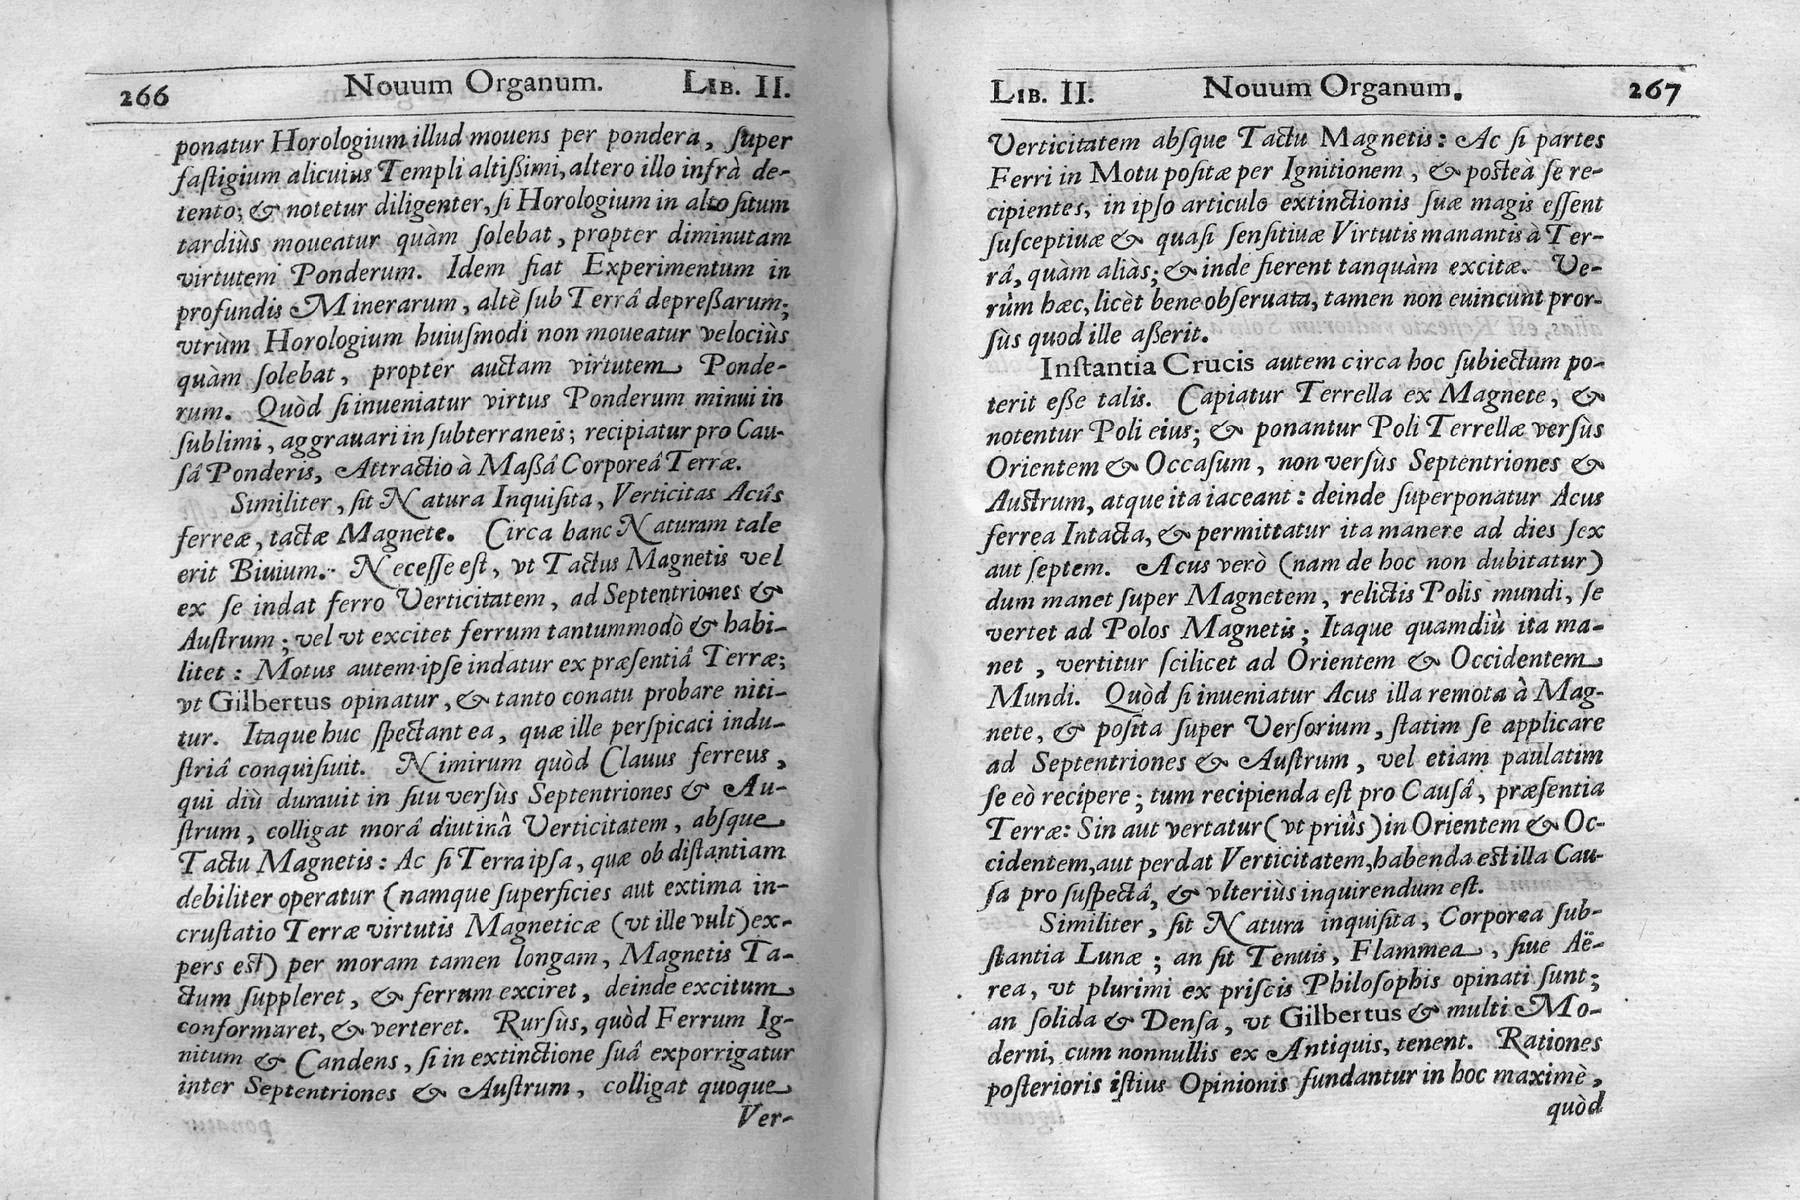 266 Nouum Organum. LIB. II.
ponatur Horologium illud mouens per pondera, ſuper
faſtigium alicuius Templi altißimi, altero illo infrà de-
tento; & notetur diligenter, ſi Horologium in alto ſitum
tardiùs moueatur quàm ſolebat, propter diminutam
virtutem Ponderum. Idem fiat Experimentum in
profundis Minerarum, altè ſub Terrâ depreßarum;
vtrùm Horologium huiuſmodi non moueatur velociùs
quàm ſolebat, propter auctam virtutem Ponde-
rum. Quòd ſi inueniatur virtus Ponderum minui in
ſublimi, aggrauari in ſubterraneis; recipiatur pro Cau-
ſâ Ponderis, Attractio à Maßâ Corporeâ Terræ.
Similiter, ſit Natura Inquiſita, Verticitas Acûs
ferreæ, tactæ Magnete. Circa hanc Naturam tale
erit Biuium. Neceſſe eſt, vt Tactus Magnetis vel
ex ſe indat ferro Verticitatem, ad Septentriones &
Auſtrum; vel vt excitet ferrum tantummodò & habi-
litet: Motus autem ipſe indatur ex præſentiâ Terræ;
vt Gilbertus opinatur, & tanto conatu probare niti-
tur. Itaque huc ſpectant ea, quæ ille perſpicaci indu-
ſtriâ conquiſiuit. Nimirum quòd Clauus ferreus,
qui diù durauit in ſitu verſùs Septentriones & Au-
ſtrum, colligat morâ diutinâ Verticitatem, abſque
Tactu Magnetis: Ac ſi Terra ipſa, quæ ob diſtantiam
debiliter operatur (namque ſuperficies aut extima in-
cruſtatio Terræ virtutis Magneticæ (vt ille vult) ex-
pers eſt) per moram tamen longam, Magnetis Ta-
ctum ſuppleret, & ferrum exciret, deinde excitum
conformaret, & verteret. Rurſùs, quòd Ferrum Ig-
nitum & Candens, ſi in extinctione ſuâ exporrigatur
inter Septentriones & Auſtrum, colligat quoque
Ver-
LIB. II. Nouum Organum. 267
Verticitatem abſque Tactu Magnetis: Ac ſi partes
Ferri in Motu poſitæ per Ignitionem, & poſteà ſe re-
cipientes, in ipſo articulo extinctionis ſuæ magis eſſent
ſuſceptiuæ & quaſi ſenſitiuæ Virtutis manantis à Ter-
râ, quàm aliàs; & inde fierent tanquàm excitæ. Ve-
rùm hæc, licèt bene obſeruata, tamen non euincunt pror-
ſùs quod ille aßerit.
Inſtantia Crucis autem circa hoc ſubiectum po-
terit eße talis. Capiatur Terrella ex Magnete, &
notentur Poli eius; & ponantur Poli Terrellæ verſùs
Orientem & Occaſum, non verſùs Septentriones &
Auſtrum, atque ita iaceant: deinde ſuperponatur Acus
ferrea Intacta, & permittatur ita manere ad dies ſex
aut ſeptem. Acus verò (nam de hoc non dubitatur)
dum manet ſuper Magnetem, relictis Polis mundi, ſe
vertet ad Polos Magnetis; Itaque quamdiù ita ma-
net, vertitur ſcilicet ad Orientem & Occidentem
Mundi. Quòd ſi inueniatur Acus illa remota à Mag-
nete, & poſita ſuper Verſorium, ſtatim ſe applicare
ad Septentriones & Auſtrum, vel etiam paulatim
ſe eò recipere; tum recipienda eſt pro Cauſâ, præſentia
Terræ: Sin aut vertatur (vt priûs) in Orientem & Oc-
cidentem, aut perdat Verticitatem, habenda eſt illa Cau-
ſa pro ſuſpectâ, & vlteriùs inquirendum eſt.
Similiter, ſit Natura inquiſita, Corporea ſub-
ſtantia Lunæ; an ſit Tenuis, Flammea, ſiue Aë-
rea, vt plurimi ex priſcis Philoſophis opinati ſunt;
an ſolida & Denſa, vt Gilbertus & multi Mo-
derni, cum nonnullis ex Antiquis, tenent. Rationes
poſterioris iſtius Opinionis fundantur in hoc maximè,
quòd